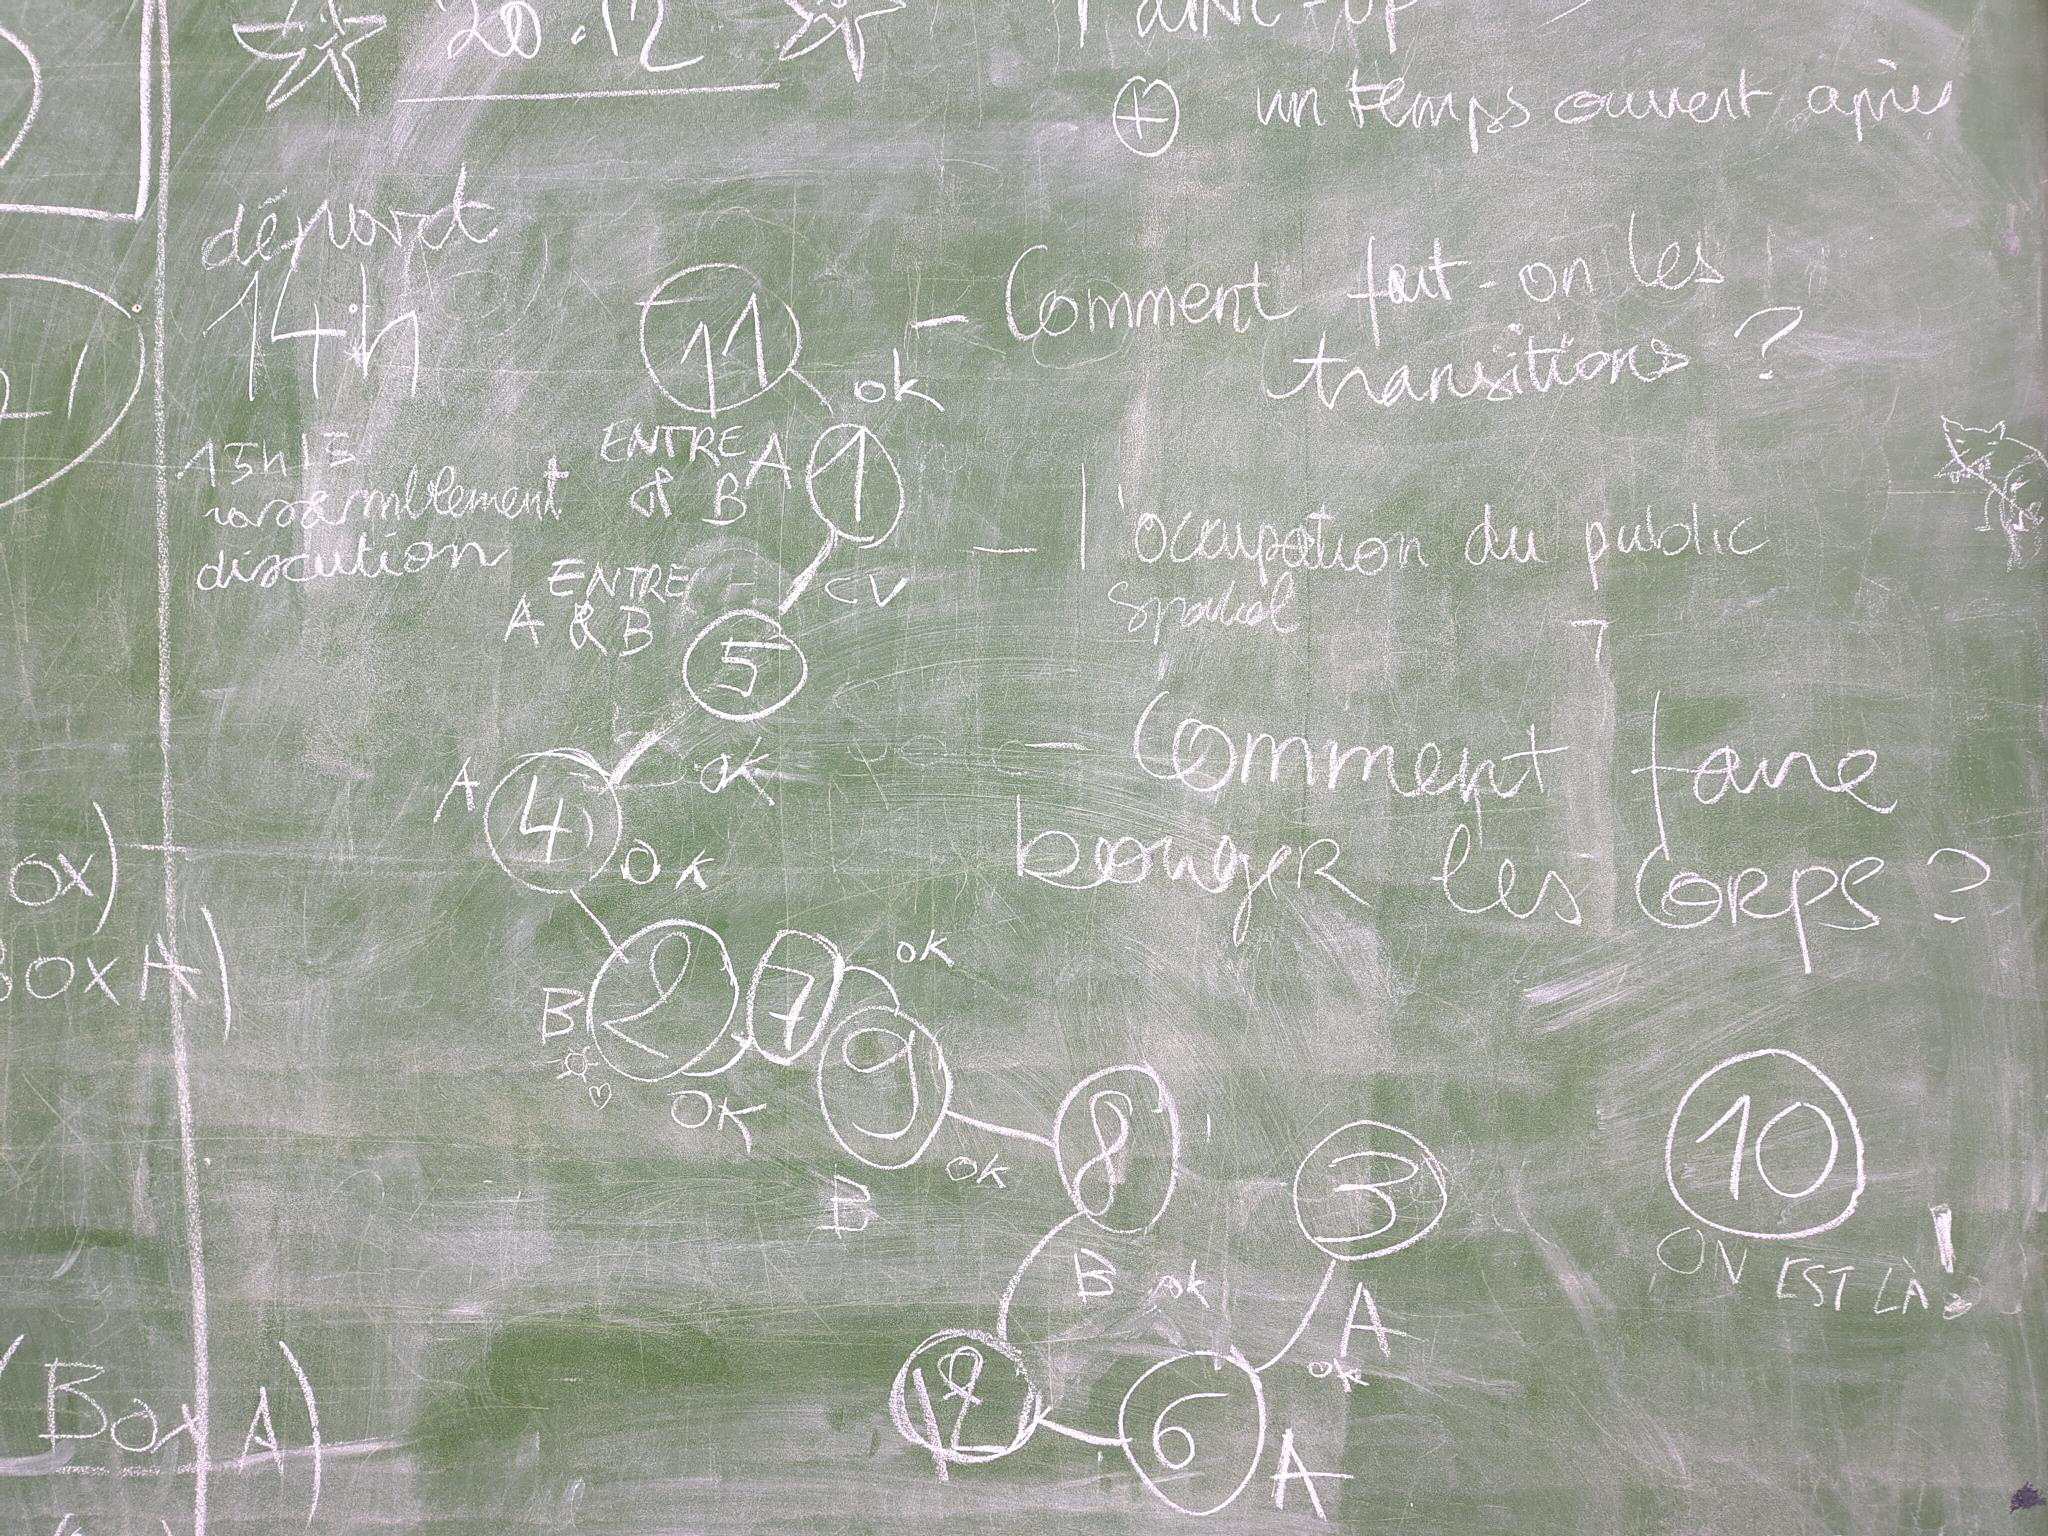 20.12
⊕ un temps ouvert après
départ
14h
rassemblement
discution
- Comment fait-on les
transitions ?
- l'occupation du public
spatial
- Comment faire
bouger les corps ?
11
ok
ENTRE A
& B
1
ENTRE
A & B
CV
5
A
4
ok
OK
B
2
7
ok
9
OK
ok
B
8
B ok
3
A
ok
12
6
A
10
ON EST LÀ !
OX)
BOX A)
(Box A)